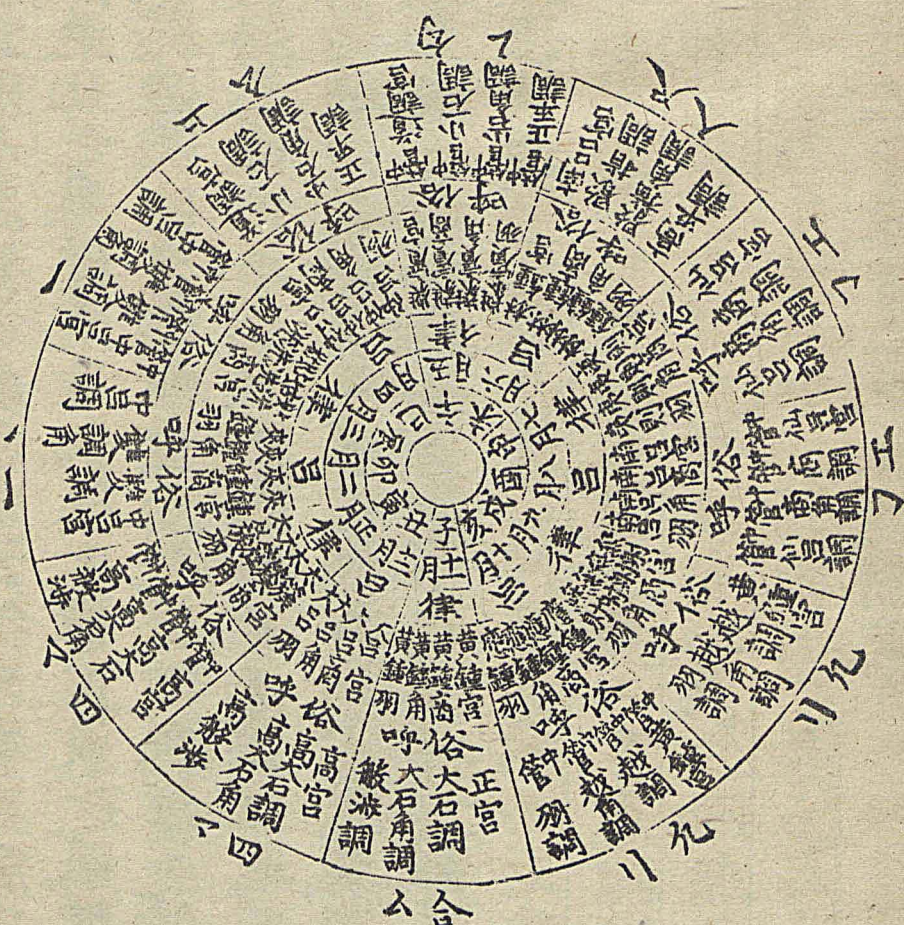 子
十一月
律
黃鍾宮
黃鍾商
黃鍾角
黃鍾羽
俗呼
正宮
大石調
大石角調
般涉調
合
丑
十二月
呂
大呂宮
大呂商
大呂角
大呂羽
俗呼
高宮
高大石調
高大石角
高般涉
四
寅
正月
律
太簇宮
太簇商
太簇角
太簇羽
俗呼
中管高宮
中管高大石
中管高大石角
中管高般涉
四
卯
二月
呂
夾鍾宮
夾鍾商
夾鍾角
夾鍾羽
俗呼
中呂宮
雙調
雙角調
中呂調
一
辰
三月
律
姑洗宮
姑洗商
姑洗角
姑洗羽
俗呼
中管中呂宮
中管雙調
中管雙角調
中管中呂調
一
巳
四月
呂
仲呂宮
仲呂商
仲呂角
仲呂羽
俗呼
道宮
小石調
小石角調
正平調
上
午
五月
律
蕤賓宮
蕤賓商
蕤賓角
蕤賓羽
俗呼
中管道調宮
中管小石調
中管小石角調
中管正平調
勾
未
六月
呂
林鍾宮
林鍾商
林鍾角
林鍾羽
俗呼
南呂宮
歇指調
歇指角調
高平調
尺
申
七月
律
夷則宮
夷則商
夷則角
夷則羽
俗呼
仙呂宮
商調
商角調
仙呂調
工
酉
八月
呂
南呂宮
南呂商
南呂角
南呂羽
俗呼
中管仙呂宮
中管商調
中管商角調
中管仙呂調
工
戌
九月
律
無射宮
無射商
無射角
無射羽
俗呼
黃鍾宮
越調
越角調
羽調
凡
亥
十月
呂
應鍾宮
應鍾商
應鍾角
應鍾羽
俗呼
中管黃鍾宮
中管越調
中管越角調
中管羽調
凡